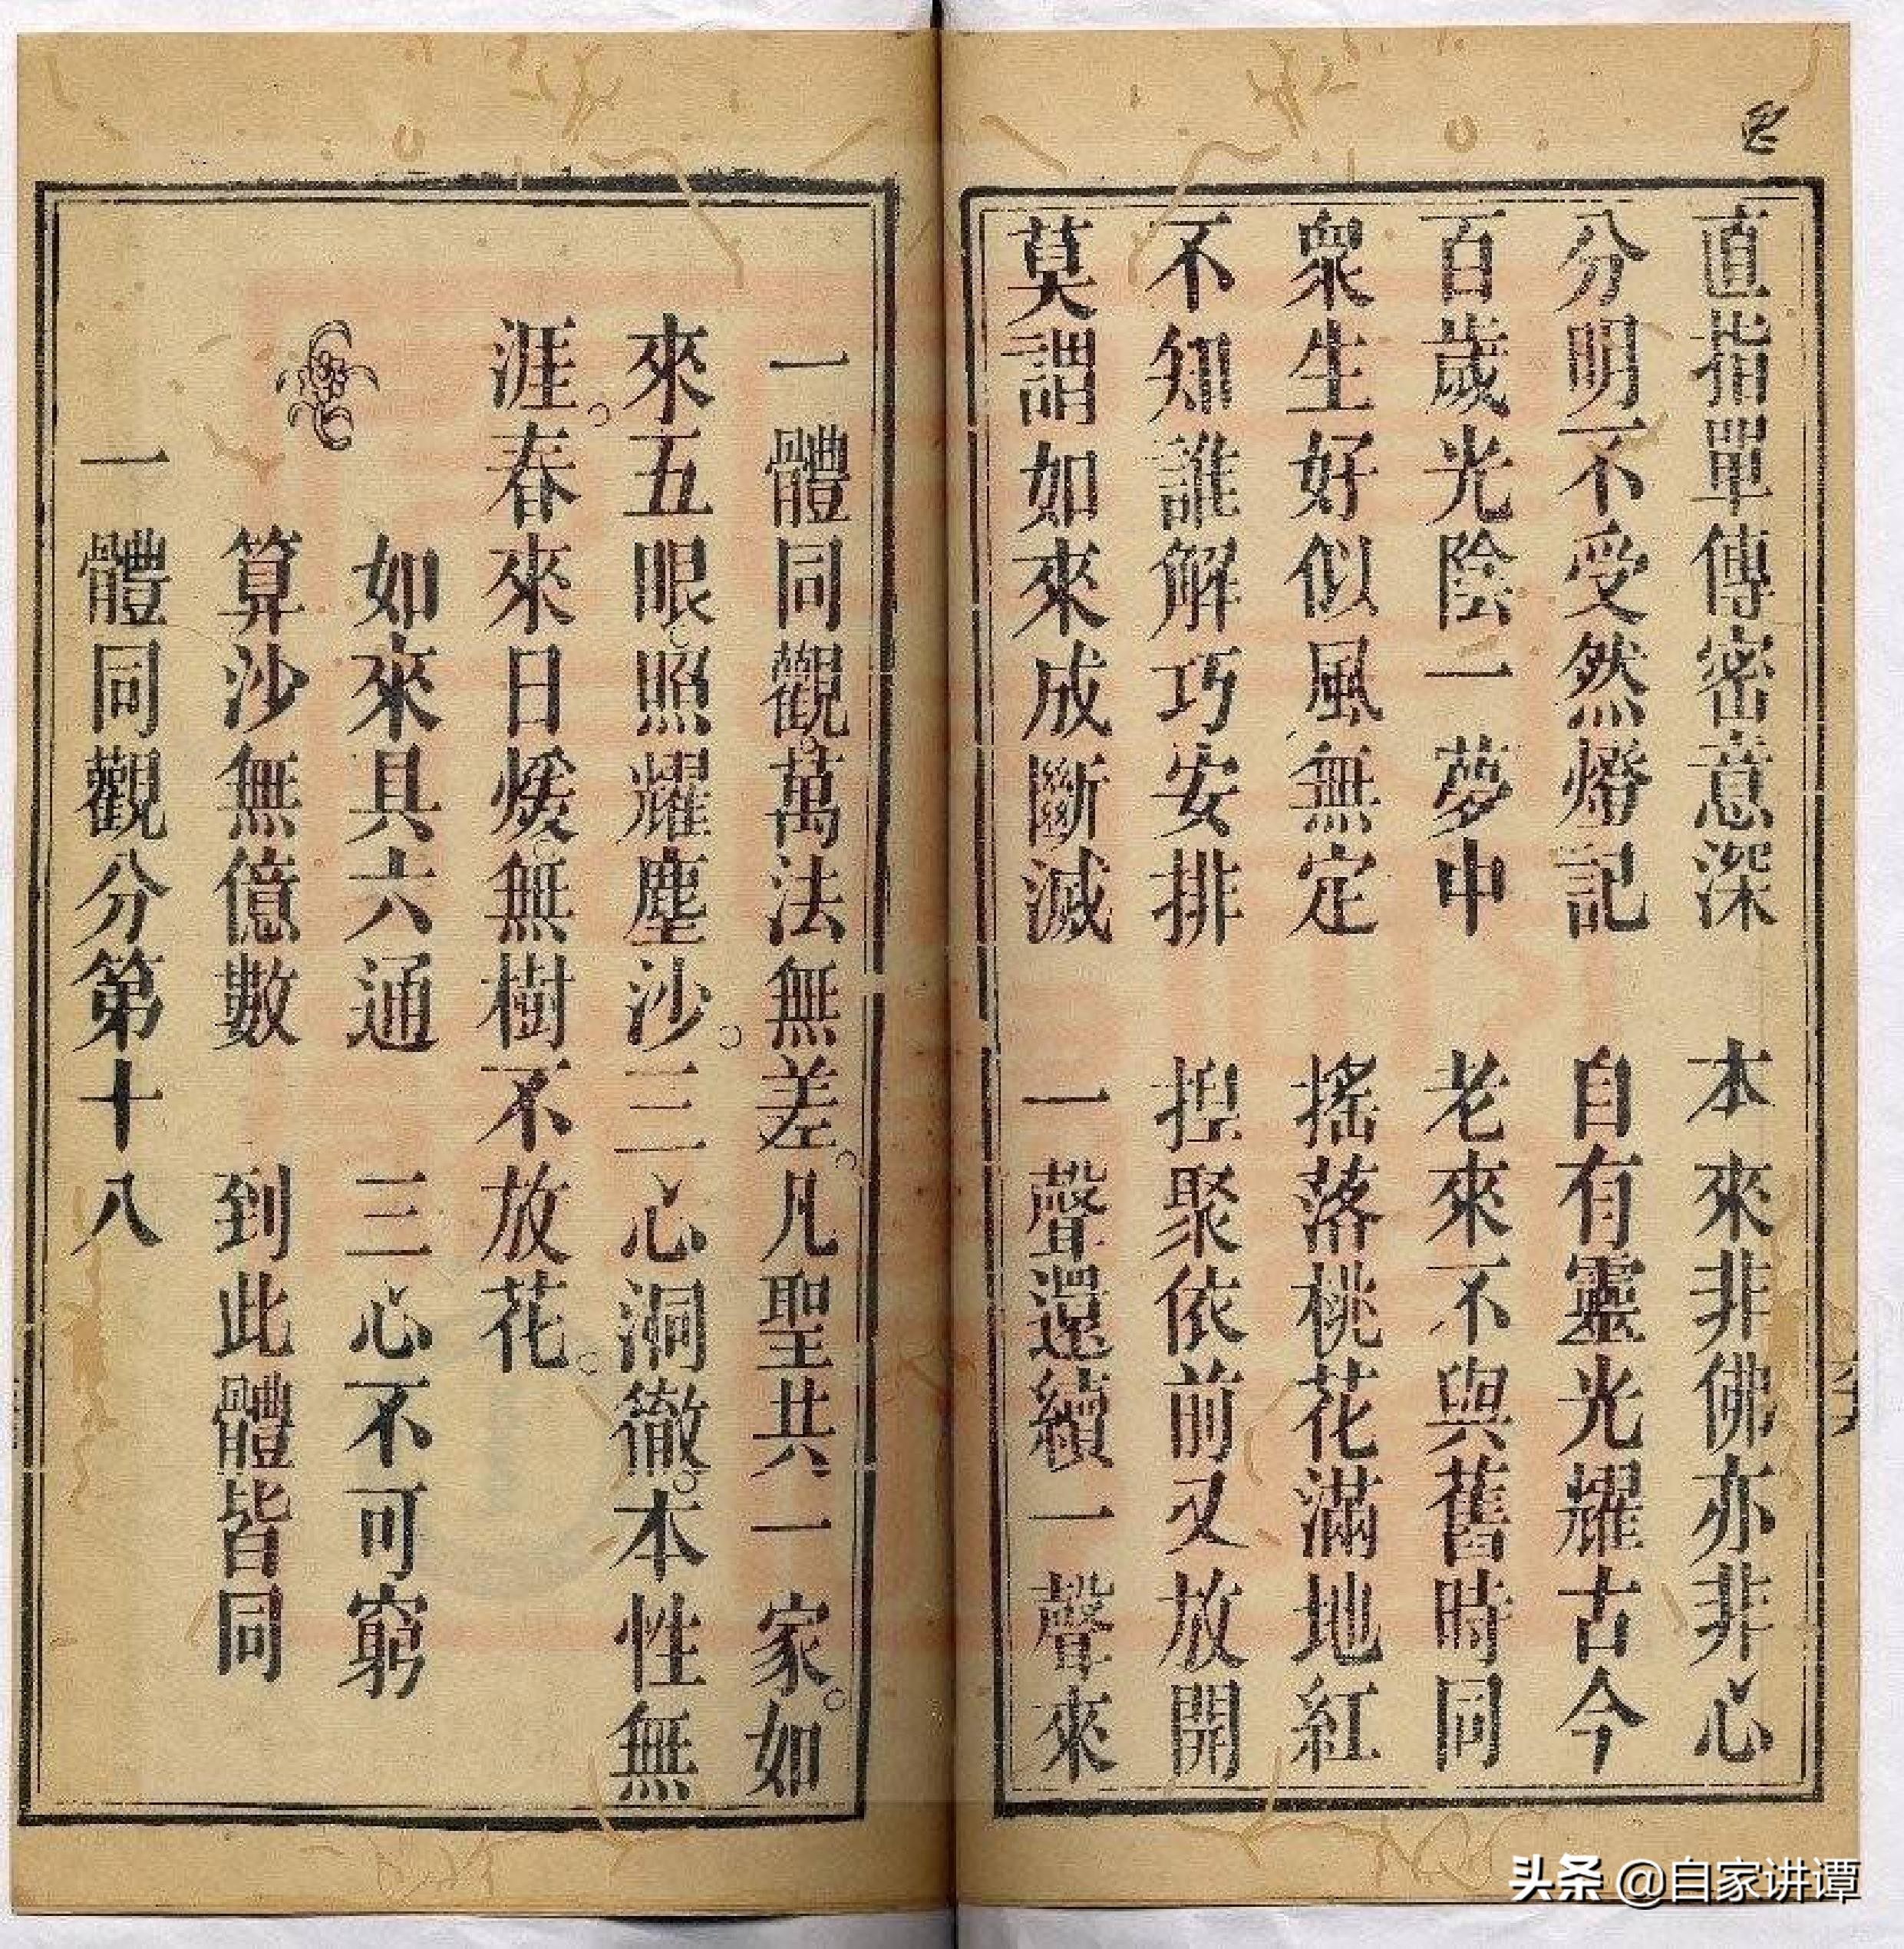 直指單傳密意深　本來非佛亦非心
分明不受然燈記　自有靈光耀古今
百歲光陰一夢中　老來不與舊時同
衆生好似風無定　搖落桃花滿地紅
不知誰解巧安排　捏聚依前又放開
莫謂如來成斷滅　一聲還續一聲來
一體同觀。萬法無差。凡聖共一家。如
來五眼。照耀塵沙。三心洞徹。本性無
涯。春來日煖。無樹不放花。
如來具六通　三心不可窮
算沙無億數　到此體皆同
一體同觀分第十八
头条 @自家讲谭